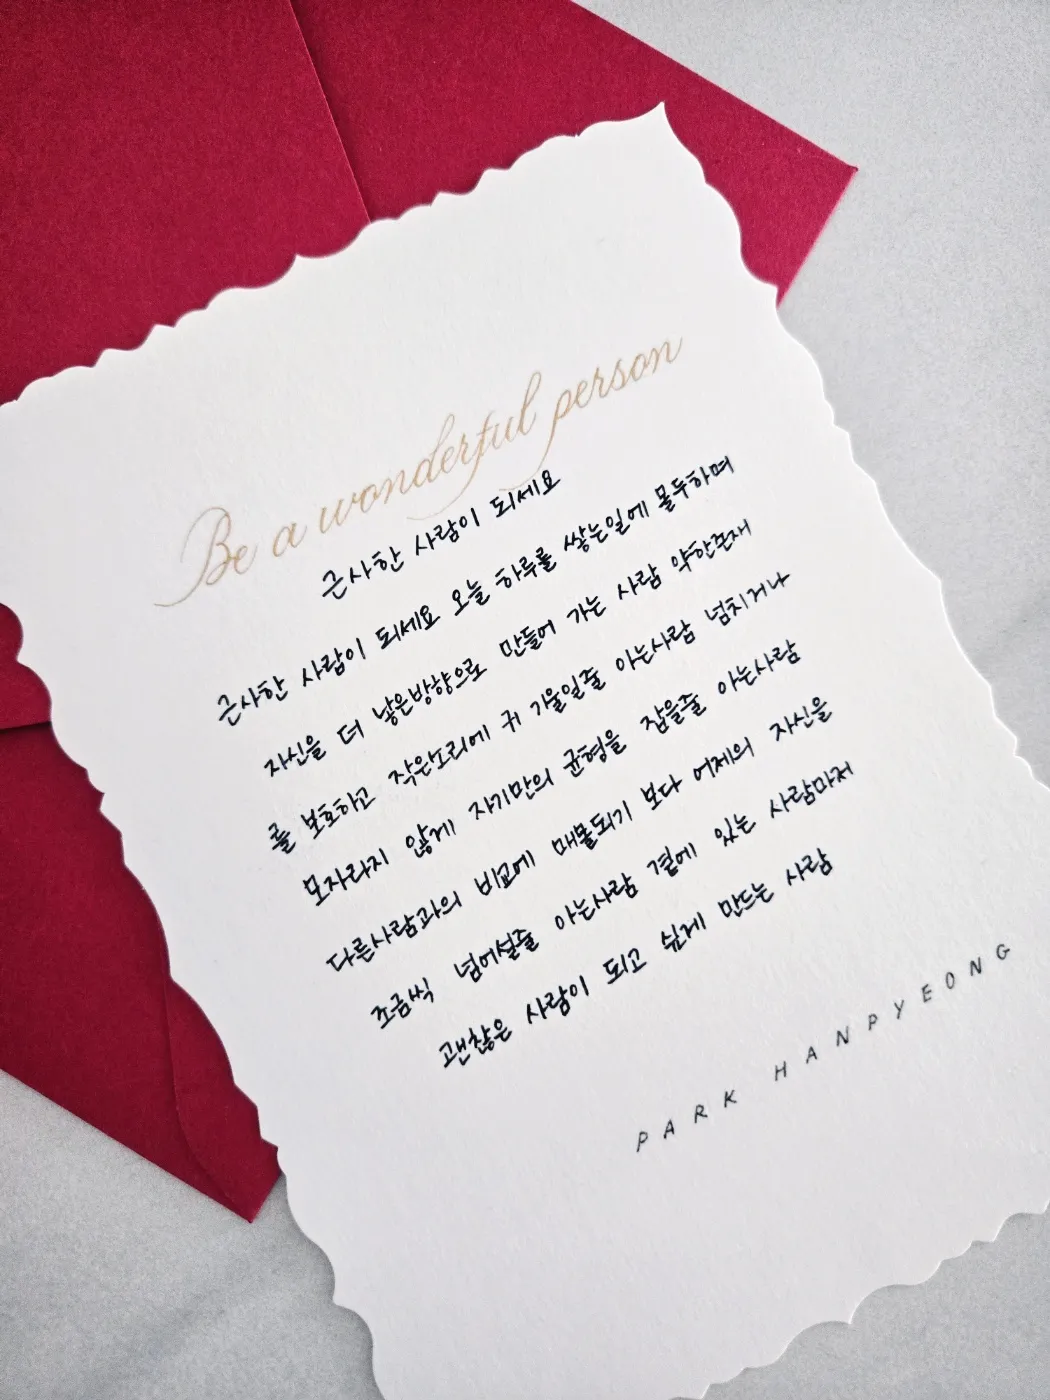 Be a wonderful person
근사한 사람이 되세요
근사한 사람이 되세요 오늘 하루를 쌓는일에 몰두하며
자신을 더 낳은방향으로 만들어 가는 사람 약한존재
를 보호하고 작은소리에 귀 기울일줄 아는사람 넘치거나
모자라지 않게 자기만의 균형을 잡을줄 아는사람
다른사람과의 비교에 매몰되기 보다 어제의 자신을
조금씩 넘어설줄 아는사람 곁에 있는 사람마저
괜찮은 사람이 되고 싶게 만드는 사람
PARK HANPYEONG